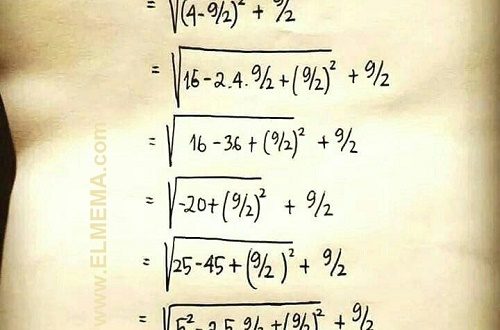 = √(4-9/2)² + 9/2
= √16-2.4.9/2+(9/2)² + 9/2
= √16-36+(9/2)² + 9/2
= √-20+(9/2)² + 9/2
= √25-45+(9/2)² + 9/2
= √5²-2.5.9/2+(9/2)² + 9/2
www.ELMEMA.com